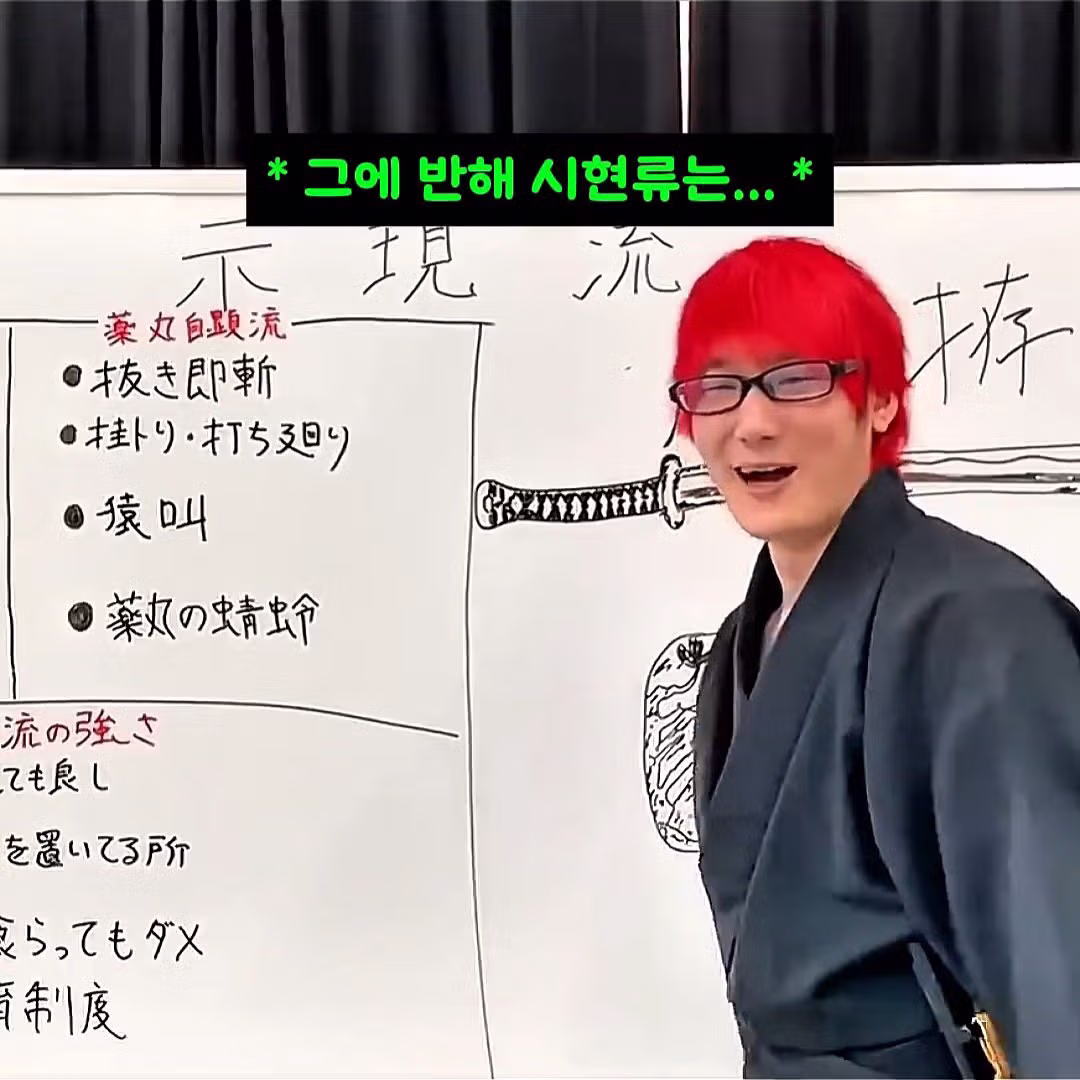 * 그에 반해 시현류는... *
示現流
薬丸自顕流
●抜き即斬
●掛トり・打ち廻り
●猿叫
●薬丸の蜻蛉
流の強さ
ても良し
を置いてる所
らってもダメ
制度